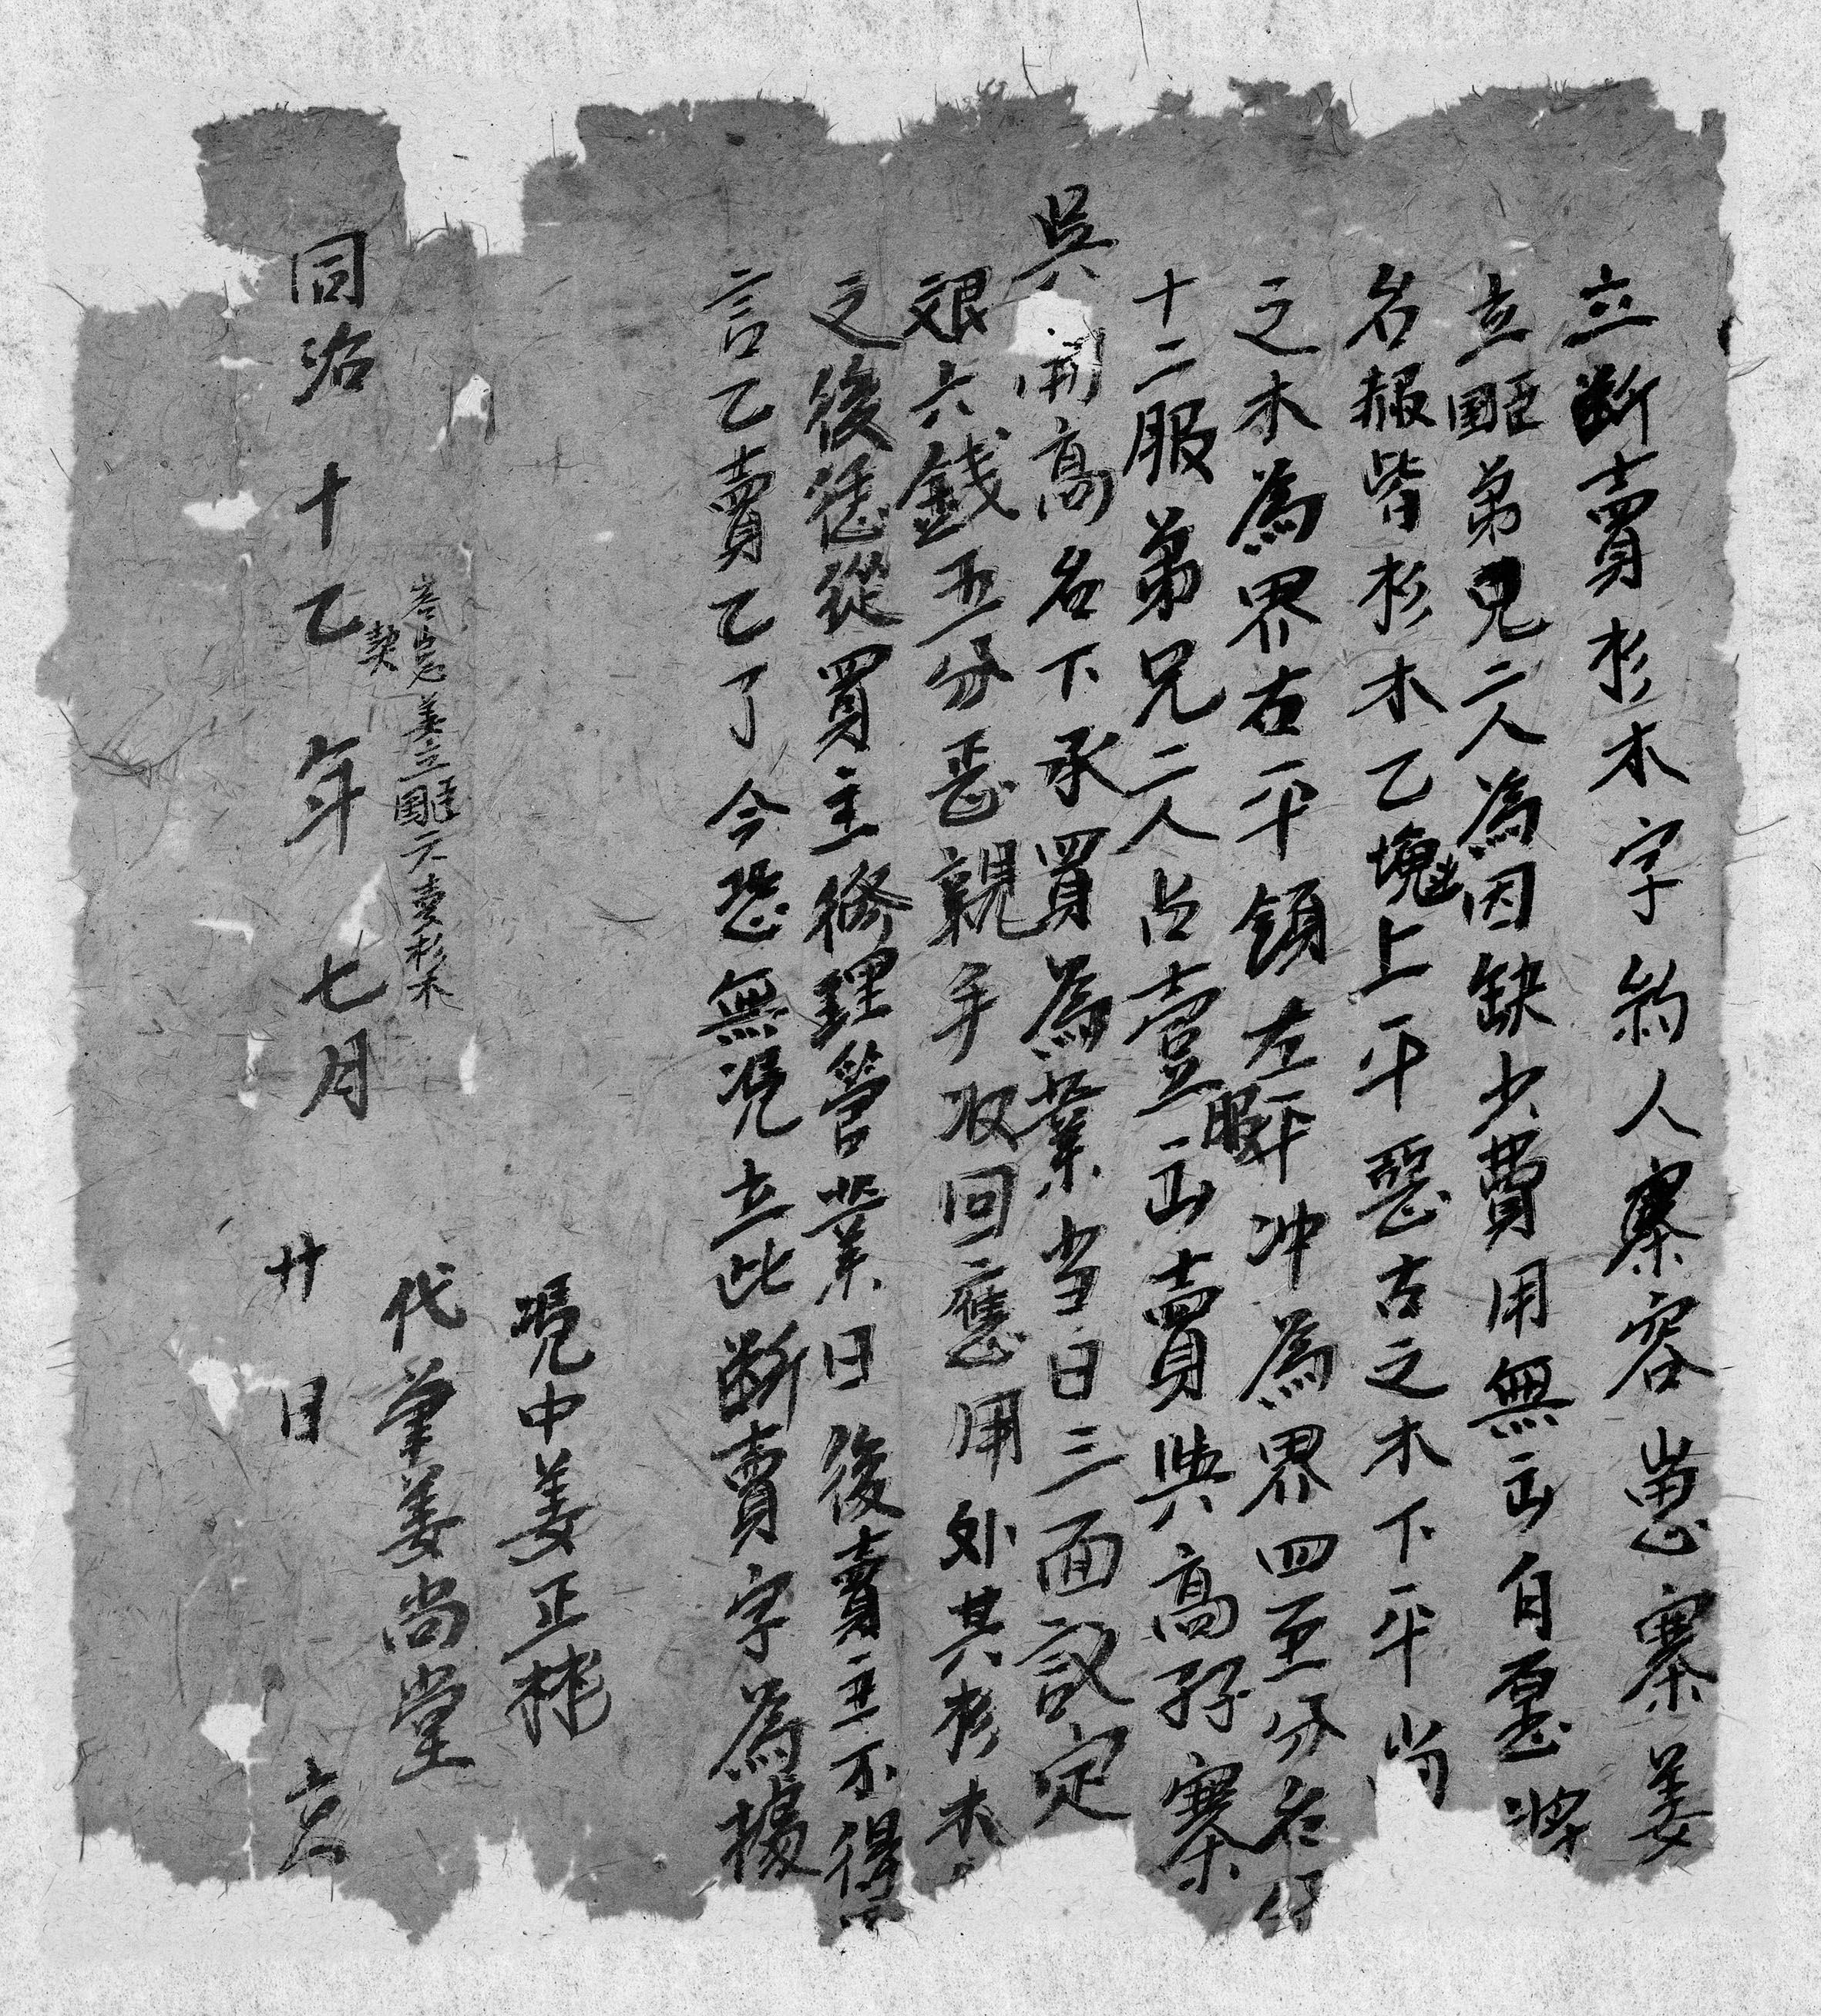 立断賣杉木字約人寨容崽寨姜
立䦉弟兄二人為因缺少費用無山自愿将
名報皆杉木乙塊上平惡古之木下平尚
之木為界右平領左平冲為界四至分名
十二服弟兄二人占壹山賣與高孖寨
吳開高名下承買為業当日三面議定
艮六錢五分悉親手收回應用外其杉木
之後恁從買主修理管業日後賣主不得
言乙賣乙了今恐無凴立此断賣字為據
凴中姜正
代筆姜尚堂
姜立䦉二賣杉木
契
同治十乙年七月廿日立